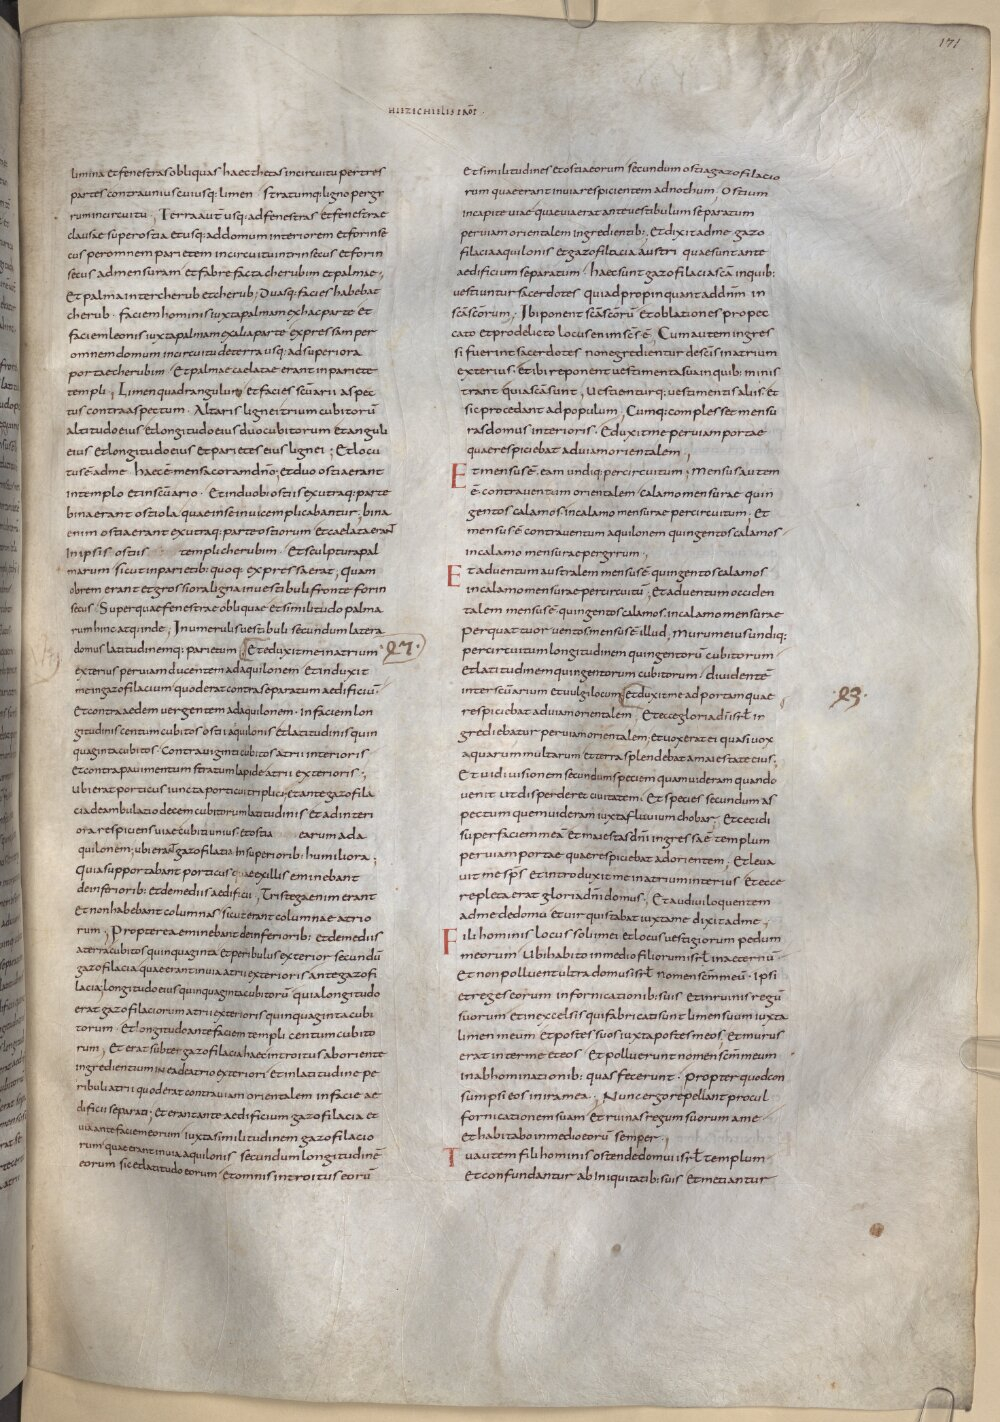 171
HIEZECHIELIS PROF
limina et fenestras obliquas haecthetas incircuitu pertres
partes contra uniuscuiusq: limen · stratumq: ligno pergy
rum incircuitu ; Terra aut usq: ad fenestras et fenestrae
clausae super ostia etusq: ad domum interiorem et forinse
cus per omnem parietem incircuitu intrinsecus et forin
secus ad mensuram et fabrefacta cherubim et palmae ;
Et palma inter cherub et cherub ; Duasq: facies habebat
cherub · faciem hominis iuxta palmam ex hac parte et
faciem leonis iuxta palmam ex alia parte expressam per
omnem domum incircuitu de terra usq: ad superiora
portae cherubim et palmae caelatae erant in pariete
templi ; Limen quadrangulum et facies scuarii aspec
tus contra aspectum · Altaris lignei trium cubitorū
altitudo eius et longitudo eius duo cubitorum et anguli
eius et longitudo eius et parietes eius lignei ; Et locu
tus ē adme haec ē mensa coram dnō ; et duo ostia erant
in templo et in scūario · Et induob: ostiis ex utraq: parte
bina erant ostiola quae inse inuicem plicabantur ; bina
enim ostia erant ex utraq: parte ostiorum et caelata erant
In ipsis ostiis templi cherubim · Et sculptura pal
marum sicut in parietib: quoq: expressa erat , Quam
obrem erant et grossiora ligna in uestibuli fronte forin
secus · Super quae fenestrae obliquae et similitudo palma
rum hinc atq: inde ; In umerulis uestibuli secundum latera
domus latitudinemq: parietum Et eduxit me in atrium
exterius per uiam ducentem ad aquilonem et induxit
me in gazofilacium quod erat contra separatum aedificiū
Et contra aedem uergentem ad aquilonem · in facie lon
gitudinis centum cubitos ostii aquilonis et latitudinis quin
quaginta cubitos · Contra uiginti cubitos atrii interioris
Et contra pauimentum stratum lapide atrii exterioris ·,
ubi erat porticus iuncta porticui triplici · et ante gazofila
cia deambulatio decem cubitorum latitudinis et ad interi
ora respiciens uiae cubiti unius · et ostia earum ad a
quilonem ; ubi erant gazofilatia in superiorib: humiliora ;
Quia supportabant porticus quae ex illis eminebant
de inferiorib: et de mediis aedificii ; Tristega enim erant
Et non habebant columnas sicut erant columnae atrio
rum ; Propterea eminebant de inferiorib: et de mediis
a terra cubitos quinquaginta et peribulus exterior secundū
gazofilacia quae erant in uia atrii exterioris ante gazofi
lacia longitudo eius quinquaginta cubitorū quia longitudo
erat gazofilaciorum atrii exterioris quinquaginta cubi
torum · Et longitudo ante faciem templi centum cubito
rum ; Et erat subter gazofilacia haec introitus ab oriente
ingredientium in ea de atrio exteriori et in latitudine pe
ribuli atrii quod erat contra uiam orientalem in faciē ae
dificii separati ; et erant ante aedificium gazofilacia et
uia ante faciem eorum iuxta similitudinem gazofilacio
rum quae erant in uia aquilonis secundum longitudinē
eorum sic et latitudo eorum et omnis introitus eorū
Et similitudines et ostia eorum secundum ostia gazofilacio
rum quae erant in uia respicientem ad nothum , Ostium
in capite uiae quae uia erat ante uestibulum separatum
per uiam orientalem ingredientib: , Et dixit ad me gazo
filacia aquilonis et gazofilacia austri quae sunt ante
aedificium separatum · haec sunt gazofilacia scā in quib:
uestiuntur sacerdotes qui adpropinquant ad dnm in
scā scorum ; Ibi ponent scā scorū et oblationes pro pec
cato et pro delicto locus enim scs ē ; Cum autem ingres
si fuerint sacerdotes non egredientur de scīs in atrium
exterius · et ibi reponent uestimenta sua in quib: minis
trant quia scā sunt ; Vestienturq: uestimentis aliis et
sic procedant ad populum ; Cumq: complesset mensu
ras domus interioris · Eduxit me per uiam portae
quae respiciebat ad uiam orientalem ;
Et mensus ē eam undiq: per circuitum ; Mensus autem
ē contra uentum orientalem calamo mensurae quin
gentos calamos in calamo mensurae per circuitum ; Et
mensus ē contra uentum aquilonem quingentos calamos
in calamo mensurae per gyrum ;
Et ad uentum australem mensus ē quingentos calamos
in calamo mensurae per circuitū ; Et ad uentum occiden
talem mensus ē quingentos calamos in calamo mensurae
Per quattuor uentos mensus ē illud ; Murum eius undiq:
per circuitum longitudinem quingentorū cubitorum
et latitudinem quingentorum cubitorum diuidentē
inter scūarium et uulgi locum Et duxit me ad portam quae
respiciebat ad uiam orientalem ; Et ecce gloria dī isrł in
grediebatur per uiam orientalem ; et uox erat ei quasi uox
aquarum multarum et terra splendebat a maiestate eius ;
Et uidi uisionem secundum speciem quam uideram quando
uenit ut disperderet ciuitatem · Et species secundum as
pectum quem uideram iuxta fluuium chobar ; Et cecidi
super faciem meā Et maiestas dnī ingressa ē templum
per uiam portae quae respiciebat ad orientem ; Et leua
uit me sps et introduxit me in atrium interius et ecce
repleta erat gloria dnī domus ; Et audiui loquentem
ad me de domo et uir qui stabat iuxta me dixit ad me ;
Fili hominis locus solii mei et locus uestigiorum pedum
meorum · Ubi habito in medio filiorum isrł in aeternū ·
Et non polluent ultra domus isrł nomen scm meū · Ipsi
et reges eorum in fornicationib: suis et in ruinis regū
suorum et in excelsis qui fabricati sunt limen suum iuxta
limen meum et postes suos iuxta postes meos ; Et murus
erat inter me et eos · Et polluerunt nomen scm meum
in abhominationib: quas fecerunt · Propter quod con
sumpsi eos in ira mea ; Nunc ergo repellant procul
fornicationem suam et ruinas regum suorum a me
et habitabo in medio eorū semper ;
Tu autem fili hominis ostende domui isrł templum
Et confundantur ab iniquitatib: suis et metiantur